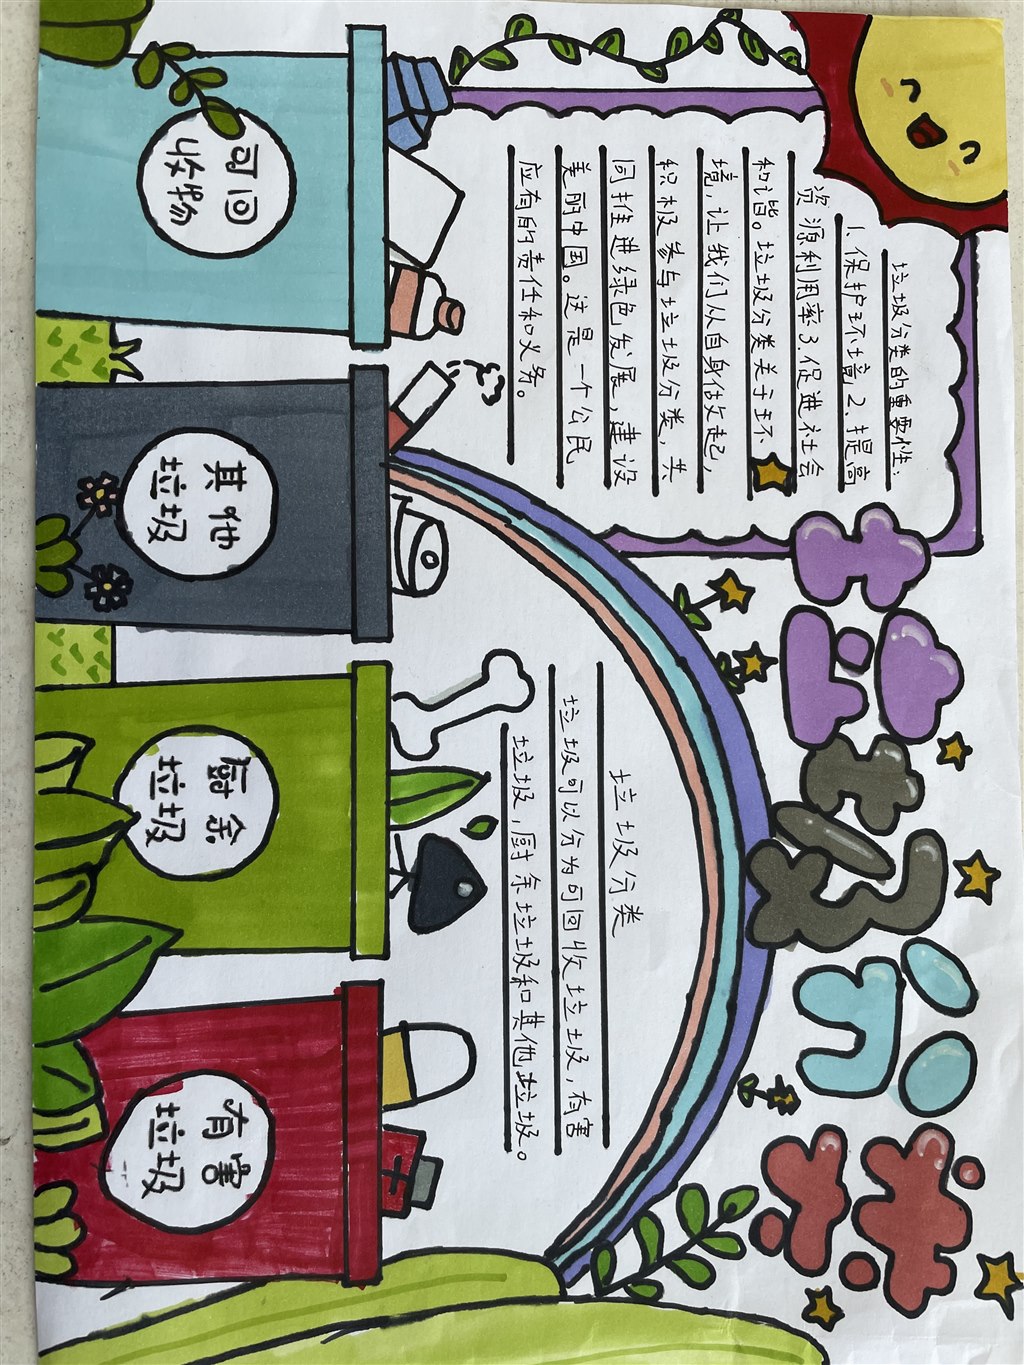 垃圾分类
垃圾分类的重要性:
1.保护环境2.提高
资源利用率3.促进社会
和谐。垃圾分类关于环
境,让我们从自身做起,
积极参与垃圾分类,共
同推进绿色发展,建设
美丽中国。这是一个公民
应有的责任和义务。
垃圾分类
垃圾可以分为可回收垃圾,有害
垃圾,厨余垃圾和其他垃圾。
可回
收物
其他
垃圾
厨余
垃圾
有害
垃圾